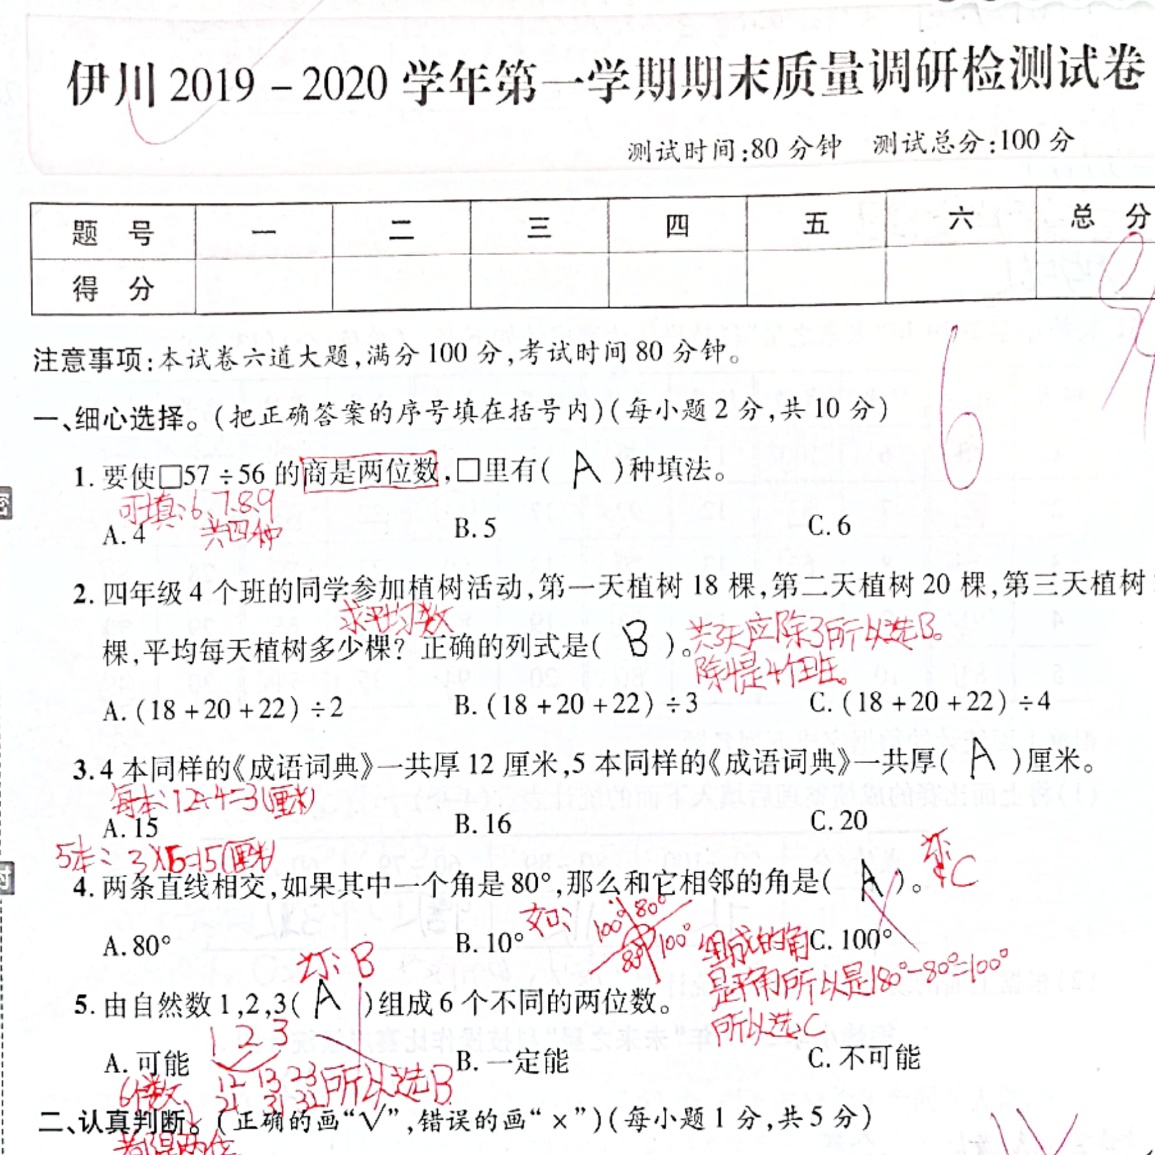 伊川2019-2020学年第一学期期末质量调研检测试卷
测试时间:80分钟 测试总分:100分
题 号 一 二 三 四 五 六 总 分
得 分
9
注意事项:本试卷六道大题,满分100分,考试时间80分钟。
6
一、细心选择。(把正确答案的序号填在括号内)(每小题2分,共10分)
1.要使□57÷56的商是两位数,□里有( A )种填法。
可填:6、7、8、9
共四种
A.4 B.5 C.6
2.四年级4个班的同学参加植树活动,第一天植树18棵,第二天植树20棵,第三天植树
求平均数
棵,平均每天植树多少棵?正确的列式是( B )。
共3天应除3所以选B。
除4是4个班。
A.(18+20+22)÷2 B.(18+20+22)÷3 C.(18+20+22)÷4
3.4本同样的《成语词典》一共厚12厘米,5本同样的《成语词典》一共厚( A )厘米。
每本:12÷4=3(厘米)
A.15 B.16 C.20
5本:3×5=15(厘米)
4.两条直线相交,如果其中一个角是80°,那么和它相邻的角是( A )。
C
如: 100° 80° 80° 100°
A.80° B.10° C.100°
组成的角
是平角所以是180°-80°=100°
所以选C
B
5.由自然数1,2,3( A )组成6个不同的两位数。
1 2 3
A.可能 B.一定能 C.不可能
6个数 12 13 23
21 31 32
所以选B
二、认真判断。(正确的画“√”,错误的画“×”)(每小题1分,共5分)
都是两位